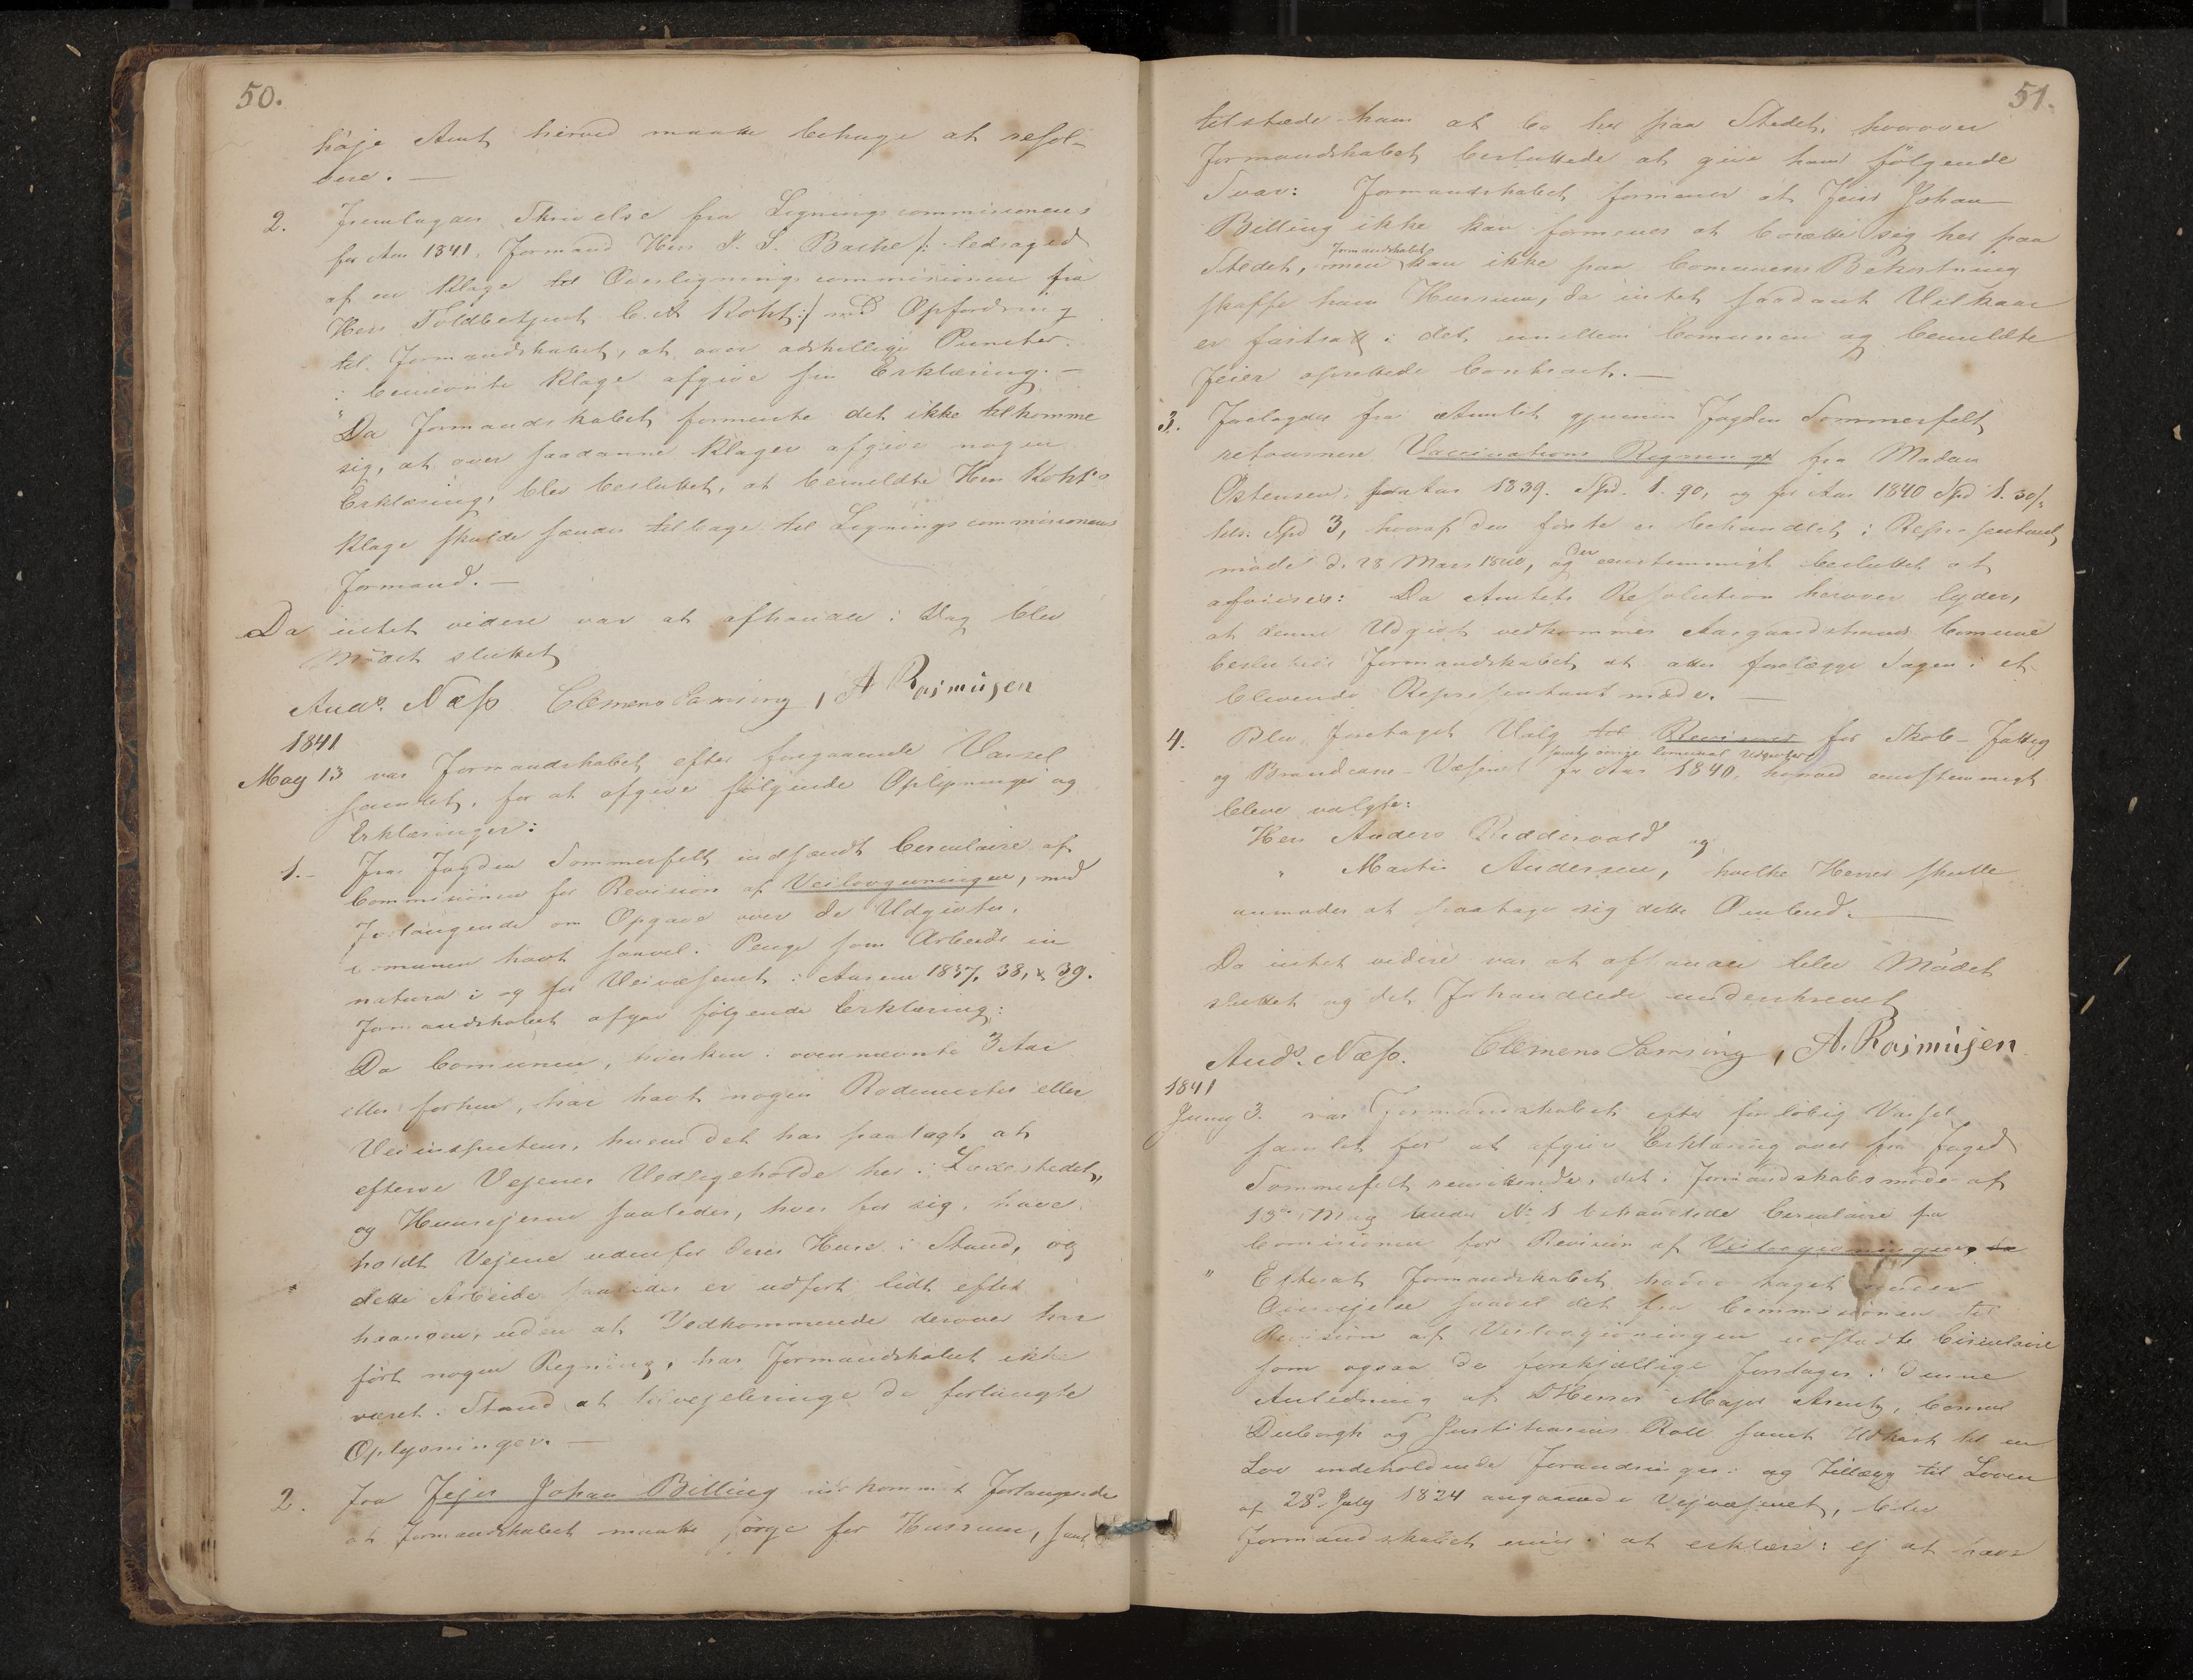 50.
höje Amt herved maatte behage at resol-
vere. —
2. Fremlagdes Skrivelse fra Ligningscommissionens
for Aar 1841, Formand Herr P. S. Bache /: ledsaget
af en Klage til Overligningscommissionen fra
Herr Toldbetjent C. A Koht :/ med Opfordring
til Formandskabet, at over adskillige Puncter
i benævnte Klage afgive sin Erklæring. —
Da Formandskabet formente det ikke tilkomme
sig, at over saadanne Klager afgive nogen
Erklæring, blev besluttet, at bemeldte Herr Koht's
Klage skulde sendes tilbage til Ligningscommissionens
Formand. —
Da intet videre var at afhandle i Dag blev
Mödet sluttet
Ands. Næss. Clemens Samsing, A Rasmusen
1841
May 13 var Formandskabet efter foregaaende Varsel
samlet, for at afgive fölgende Oplysninger og
Erklæringer:
1. — Fra Fogden Sommerfelt indsendt Circulaire af
Commissionen for Revision af Veilovgivningen, med
Forlangende om Opgave over de Udgivter,
Comunen havt saavel i Penge som Arbeide in
natura i og for Veivæsenet i Aarene 1837, 38, & 39.
Formandskabet afgav fölgende Erklæring:
Da Comunen, hverken i ovennævnte 3 Aar
eller forhen, har havt nogen Rodemester eller
Veiinspecteur, hvem det har paalagt at
efterse Vejenes Vedligeholde her i Ladestedet,
og Huusejerne saaledes, hver for sig, have
holdt Vejene udenfor deres Huse i Stand, og
dette Arbeide saaledes er udfort lidt efter
hvanden, uden at Vedkommende derover har
fört nogen Regning, har Formandskabet ikke
været i Stand at tilvejebringe de forlangte
Oplysninger. —
2. Fra Fejer Johan Billing indkommet Forlangende
at Formandskabet maatte sörge for Huusrum, samt
51.
tilstæde ham at bo her paa Stedet, hvorover
Formandskabet besluttede at give ham fölgende
Svar: Formandskabet formener at Feier Johan
Billing ikke kan formenes at boesætte sig her paa
Formandskabet
Stedet, men kan ikke paa Comunens Bekostning
skaffe ham Huusrum, da intet saadant Vilkaar
er fastsatt i det imellem Comunen og bemeldte
Feier oprettede Contract. —
3. Forelagdes fra Amtet gjennem Fogden Sommerfelt
retournere Vaccinations Regning fra Madam
Östensen, for Aar 1839. Spd. 1. 90, og for Aar 1840 Spd 1. 30/:
tils: Spd 3, hvoraf den förste er behandlet i Repræsentant
möde d. 28 Mars 1840, og der eenstemmigt besluttet at
afvises: Da Amtets Resolution herover lyder,
at denne Udgivt vedkommer Aasgaardstrands Comune
besluttes Formandskabet at atter forelægge Sagen i et
blivende Repræsentant möde. —
4. Blev foretaget Valg til Revisorer for Skole- Fattig
samt övrige Comunal Udgivter
og Brandcasse-Væsenet for Aar 1840, hvorved eenstemmigt
bleve valgte:
Herr Anders Riddervold og
" Martin Andersen, hvilke Herrer skulle
anmodes at paatage sig dette Ombud. —
Da intet videre var at afhandle blev Mödet
sluttet og det Forhandlede underskrevet
Ands. Næss. Clemens Samsing, A. Rasmusen
1841
Juny 3. var Formandskabet efter forlöbig Varsel
samlet for at afgive Erklæring over fra Foged
Sommerfelt remitterede, det i Formandskabsmöde af
13de May under No 1 behandlede Circulaire fra
Comissionen for Revision af Veilovgivningen,
" Efterat Formandskabet havde taget under
Overvejelse saavel det fra Commissionen til
Revision af Veilovgivningen udstædte Circulaire
som ogsaa de forskjællige Forslager i denne
Anledning af DHerrer Major Arentz, Consul
Duborgh og Justitiarius Roll samt Udkast til en
Lov indeholdende Forandringer i og Tillæg til Loven
af 28de July 1824 angaaende Vejvæsenet, blev
Formandskabet enig i at erklære: ej at have